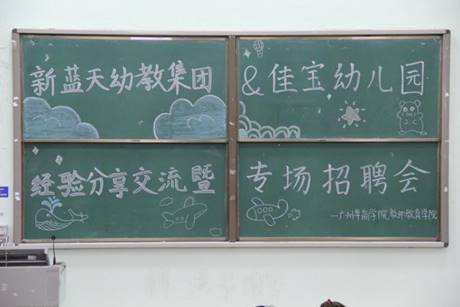 新蓝天幼教集团
&佳宝幼儿园
经验分享交流暨
专场招聘会
—广州华商学院教师教育学院